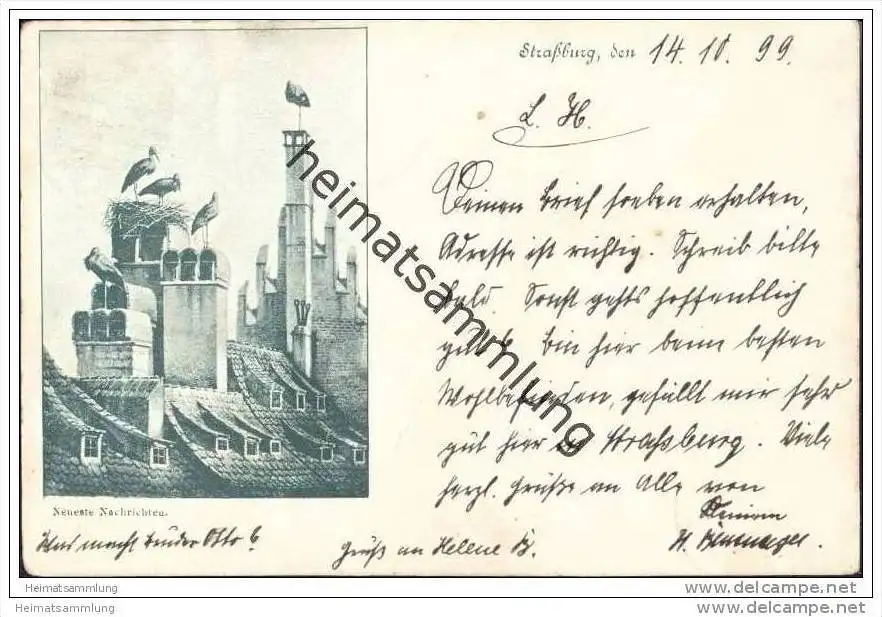 Straßburg, den 14. 10. 99.
L. H.
Deinen Brief soeben erhalten,
Adresse ist richtig. Schreib bitte
bald. Sonst gehts hoffentlich
gut. Bin hier beim besten
Wohlbefinden, gefällt mir sehr
gut hier in Straßburg. Viele
herzl. Grüße an Alle von
Deinem
H.
Neueste Nachrichten.
Was macht Bruder Otto?
Gruß an Helene B.
heimatsammlung
Heimatsammlung
Heimatsammlung
www.delcampe.net
www.delcampe.net